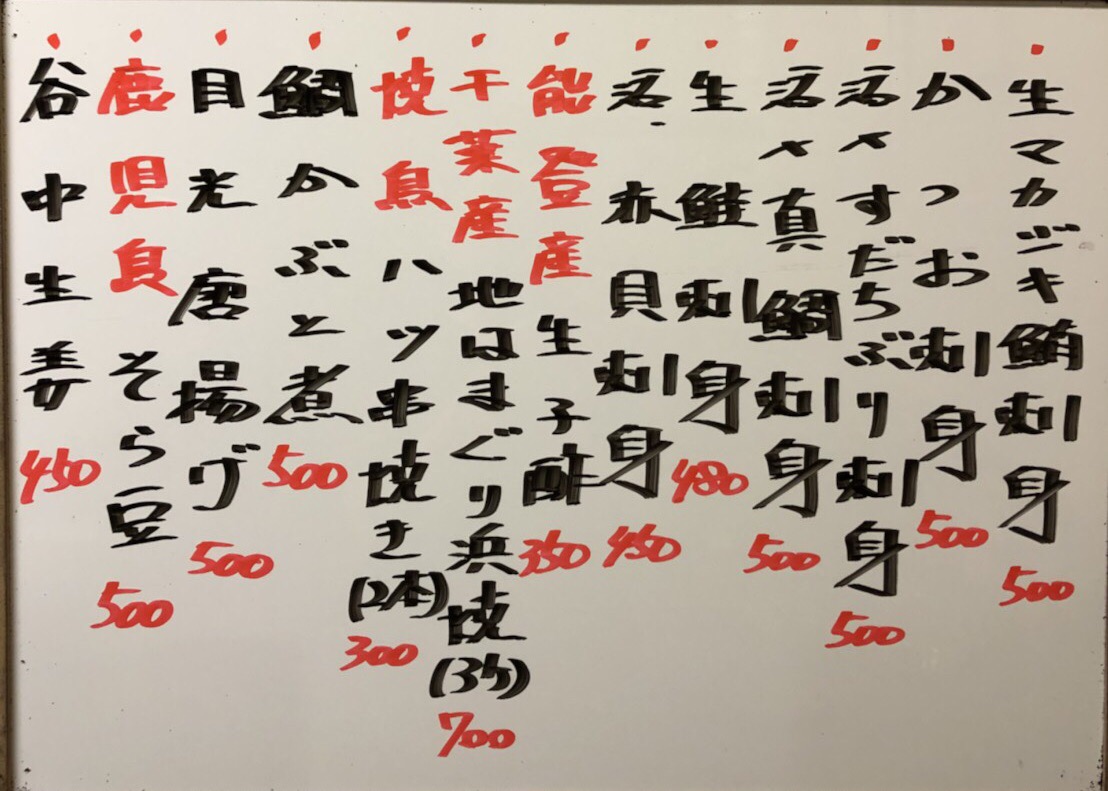 ・生マカジキ鮪刺身 500
・かつお刺身 500
・活〆すだちぶり刺身 500
・活〆真鯛刺身 500
・生鮭刺身 480
・活赤貝刺身 450
・能登産生子酢 350
・千葉産地はまぐり浜焼(3ケ) 700
・焼鳥ハツ串焼き(2本) 300
・鯛かぶと煮 500
・目光唐揚げ 500
・鹿児島そら豆 500
・谷中生姜 450